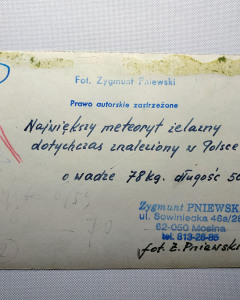 Fot. Zygmunt Pniewski
Prawo autorskie zastrzeżone
Największy meteoryt żelazny
dotychczas znaleziony w Polsce
o wadze 78 kg. długość 50
Zygmunt PNIEWSK
ul. Sowiniecka 46a/28
62-050 Mosina
tel. 813-26-86
fot. Z. Pniewski